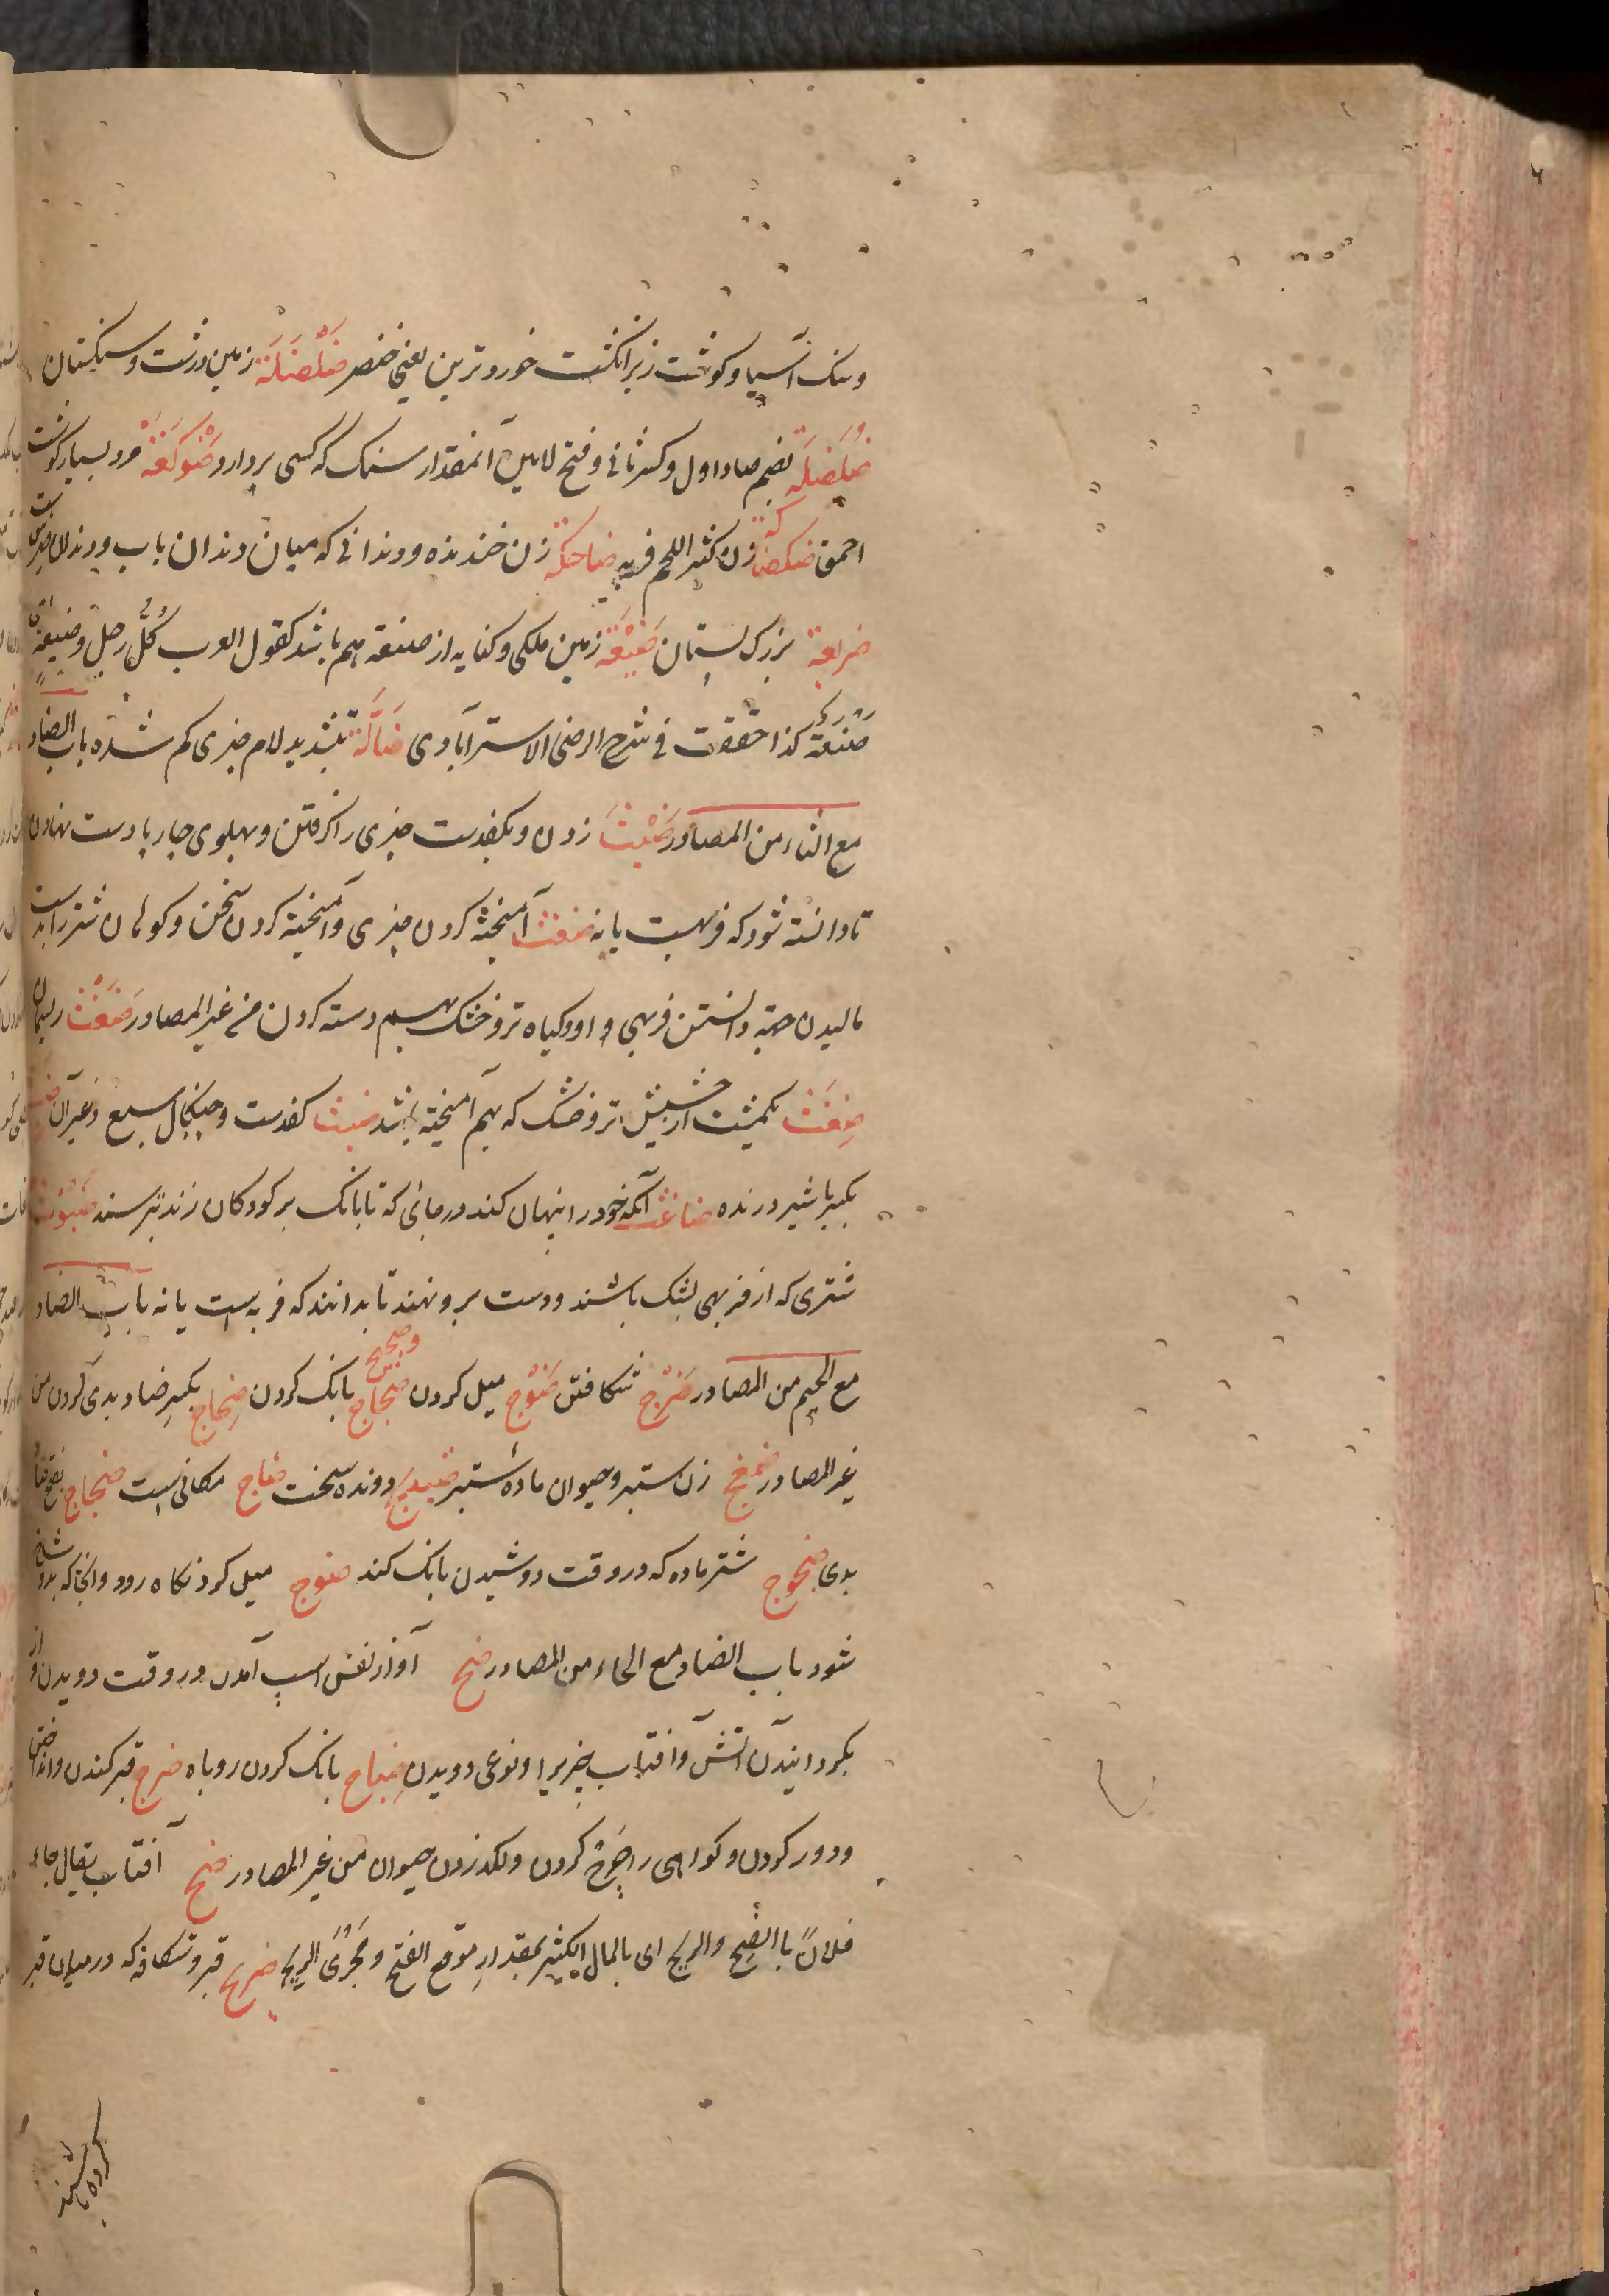 وسنک آسیا و کوشت زیر انکشت خوردترین یعنی خنصر ضَلْضَلَة زمین درشت و سنکستان
ضُلَضِلَة بضم ضاد اول و کسر ثانی و فتح لامین آنمقدار سنک که کسی بردارد ضَوْکَعَة مرد بسیار کوشت
احمق ضکضاکة زن کثیر اللحم فربه ضاحکة زن خندنده و دندانی که میان دندان ناب و دندان ضرس است
ضریعة بزرک پستان ضَیْعَة زمین ملکی و کنایه از صنعة هم باشد کقول العرب کُلُّ رجلٍ وضیعته ای
صَنْعَة کذا حققت فی شرح الرضی الاسترآبادی ضَالَّة بتشدید لام چیزی کم شده باب الضاد
مع الثاء من المصادر ضَبْث زدن و بکفدست چیزی را کرفتن و بهلوی چارپا دست نهادن
تا دانسته شود که فربهست یا نه ضغث آمیخته کردن چیزی و آمیخته کردن سخن و کوهان شتر را بدست
مالیدن جهة دانستن فربهی او و کیاه تر و خشک بهم دسته کردن من غیر المصادر ضَغْث ریسمان
ضِغْث یکمشت از حشیش تر و خشک که بهم آمیخته باشد ضبث کفدست و چنکال سبع و غیر آن
بکسر با شیر درنده ضاغث آنکه خود را پنهان کند در جائی که تا بانک بر کودکان زند بترسند ضَبُوث
شتری که از فربهی بشک باشند و دست بر و نهند تا بدانند که فربه است یا نه باب الضاد
مع الجیم من المصادر ضَرْج شکافتن ضَوْج میل کردن ضجاج و ضجیج بانک کردن ضِجاج بکسر ضاد بدی کردن من
غیر المصادر ضمعج زن ستبر و حیوان مادهٔ ستبر دونده سخت ضاج مکانی است ضجاج بفتح ضاد
بدی ضجوج شتر ماده که در وقت دوشیدن بانک کند ضوج میل کرد نکاه رود و آنجا که بدو شاخ
شود باب الضاد مع الحاء من المصادر ضبح آواز نفس اسب آمدن در وقت دویدن او از
بکردانیدن آتش و آفتاب چیزیرا و نوعی دویدن ضباح بانک کردن روباه ضرح قبر کندن و انداختن
و دور کردن و کواهی را جَرح کردن و لکد زدن حیوان من غیر المصادر ضح آفتاب یقال جاء
فلانٌ بالضِّح والریح ای بالمال الکثیر بمقدار موقع الضح و مَجْرَی الریح ضریح قبر و شکافی که در میان قبر
کرده باشند